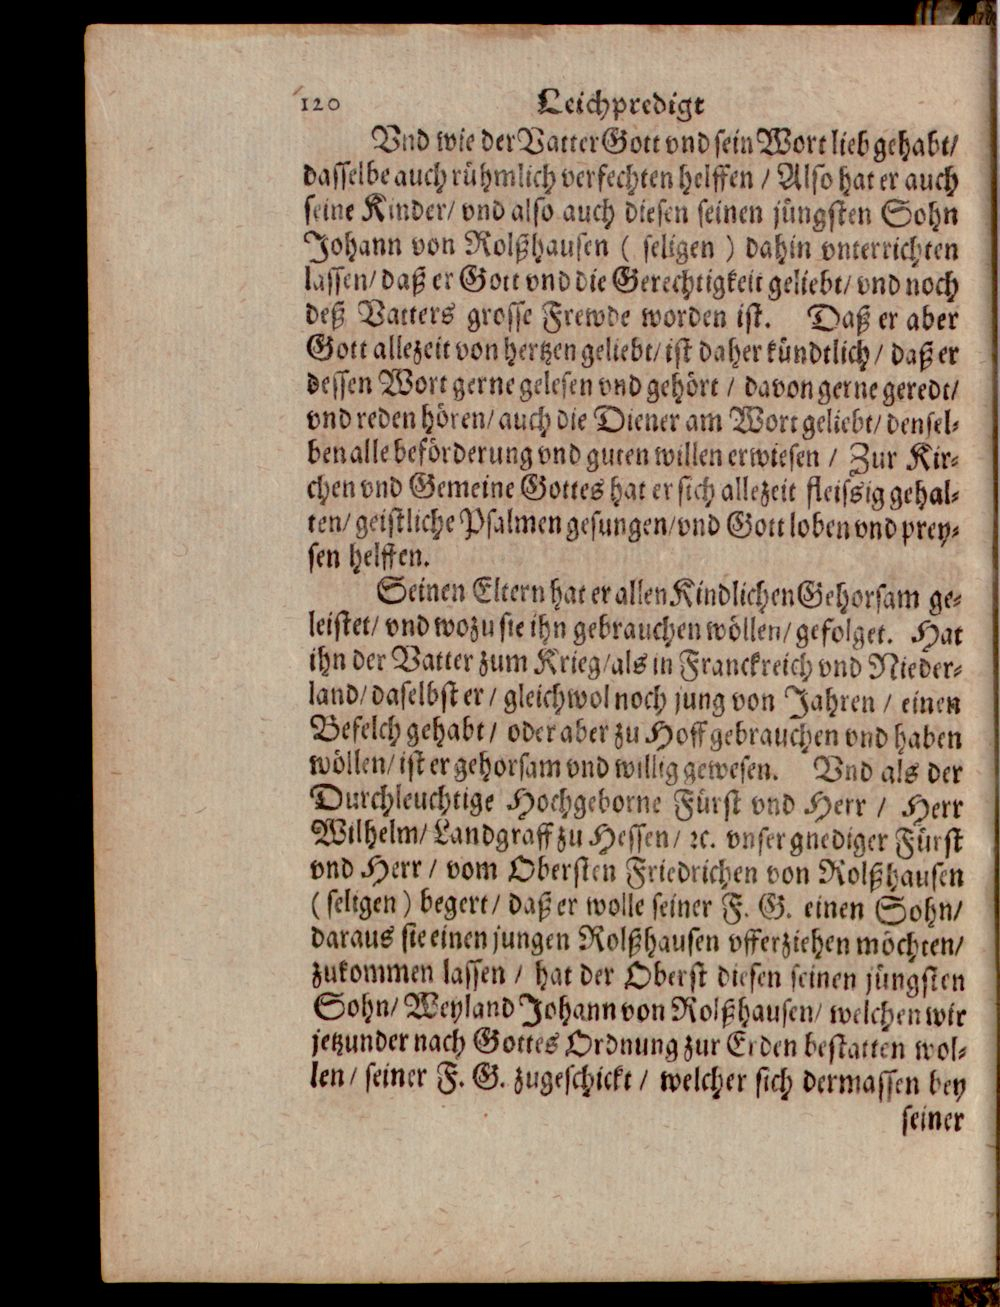 120 Leichpredigt
Vnd wie der Vatter Gott vnd sein Wort lieb gehabt/
dasselbe auch rühmlich verfechten helffen / Also hat er auch
seine Kinder/ vnd also auch diesen seinen jüngsten Sohn
Johann von Rolßhausen ( seligen ) dahin vnterrichten
lassen/ daß er Gott vnd die Gerechtigkeit geliebt/ vnd noch
deß Vatters grosse Frewde worden ist. Daß er aber
Gott allezeit von hertzen geliebt/ ist daher kündtlich / daß er
dessen Wort gerne gelesen vnd gehört / davon gerne geredt/
vnd reden hören/ auch die Diener am Wort geliebt/ densel-
ben alle beförderung vnd guten willen erwiesen / Zur Kir-
chen vnd Gemeine Gottes hat er sich allezeit fleissig gehal-
ten/ geistliche Psalmen gesungen/ vnd Gott loben vnd prey-
sen helffen.
Seinen Eltern hat er allen Kindlichen Gehorsam ge-
leistet/ vnd wozu sie ihn gebrauchen wöllen/ gefolget. Hat
ihn der Vatter zum Krieg/ als in Franckreich vnd Nieder-
land/ daselbst er / gleichwol noch jung von Jahren / einen
Befelch gehabt / oder aber zu Hoff gebrauchen vnd haben
wöllen/ ist er gehorsam vnd willig gewesen. Vnd als der
Durchleuchtige Hochgeborne Fürst vnd Herr / Herr
Wilhelm/ Landgraff zu Hessen/ ꝛc. vnser gnediger Fürst
vnd Herr / vom Obersten Friedrichen von Rolßhausen
( seligen ) begert/ daß er wolle seiner F. G. einen Sohn/
daraus sie einen jungen Rolßhausen vfferziehen möchten/
zukommen lassen / hat der Oberst diesen seinen jüngsten
Sohn/ Weyland Johann von Rolßhausen/ welchen wir
jetzunder nach Gottes Ordnung zur Erden bestatten wol-
len/ seiner F. G. zugeschickt / welcher sich dermassen bey
seiner